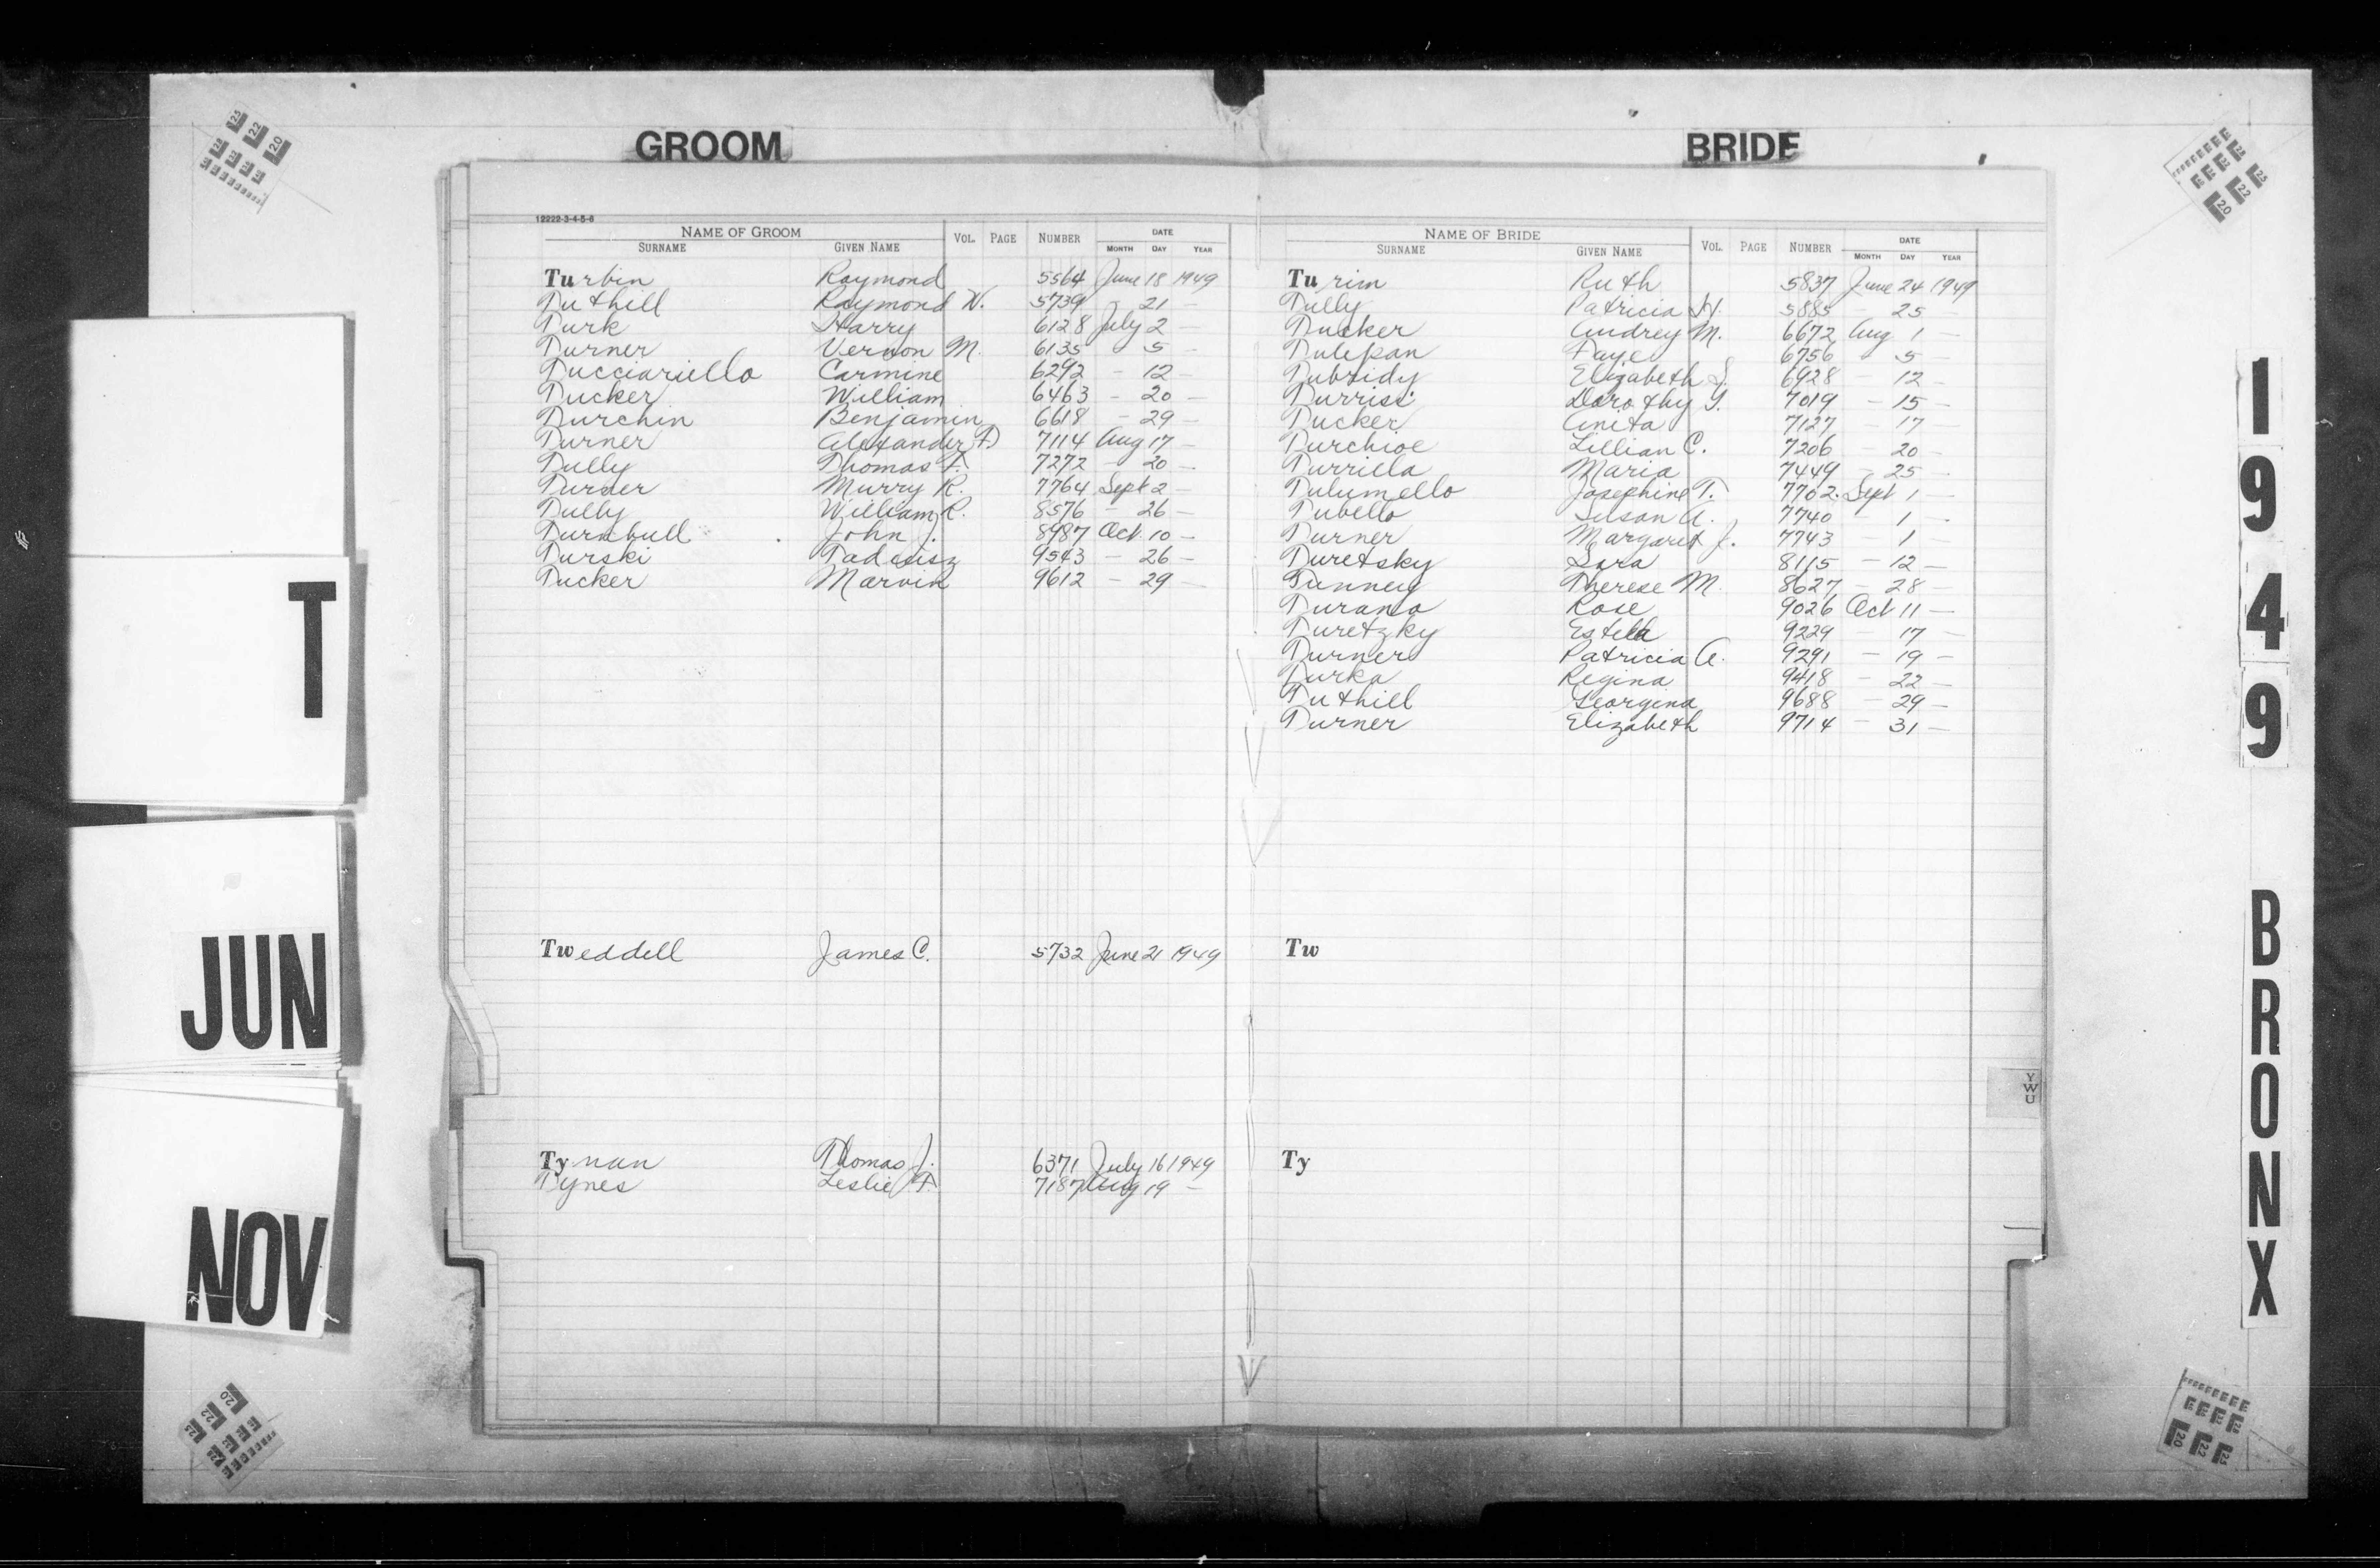 GROOM
12222-3-4-5-6
NAME OF GROOM DATE
SURNAME GIVEN NAME VOL. PAGE NUMBER MONTH DAY YEAR
Turbin Raymond 5564 June 18 1949
Tuthill Raymond W. 5739 - 21 -
Turk Harry 6128 July 2 -
Turner Vernon M. 6135 - 5 -
Tucciariello Carmine 6292 - 12 -
Tucker William 6463 - 20 -
Turchin Benjamin 6618 - 29 -
Turner Alexander 7114 Aug 17 -
Tully Thomas F. 7272 - 20 -
Turner Murry R. 7764 Sept 2 -
Tully William R. 8576 - 26 -
Turnbull John J. 8987 Oct. 10 -
Turski 9543 - 26 -
Tucker Marvin 9612 - 29 -
Tweddell James C. 5732 June 21 1949
Tynan Thomas J. 6371 July 16 1949
Tynes Leslie 7187 Aug 19 -
BRIDE
NAME OF BRIDE DATE
SURNAME GIVEN NAME VOL. PAGE NUMBER MONTH DAY YEAR
Turim Ruth 5837 June 24 1949
Tully Patricia 5885 - 25 -
Tucker Audrey M. 6672 Aug 1 -
Tulepan Faye 6756 - 5 -
Tubridy Elizabeth 6928 - 12 -
Turrisi Dorothy 7019 - 15 -
Tucker Anita 7127 - 17 -
Turchioe Lillian C. 7206 - 20 -
Turrilla Maria 7449 - 25 -
Tulumello Josephine T. 7702. Sept 1 -
Tubello Susan A. 7740 1 -
Turner Margaret J. 7743 - 1 -
Turetsky Sara 8115 - 12 -
Tunney Therese M. 8627 - 28 -
Turano Rose 9026 Oct 11 -
Turetzky Estelle 9229 - 17 -
Turner Patricia A. 9291 - 19 -
Turka Regina 9418 - 22 -
Tuthill Georgina 9688 - 29 -
Turner Elizabeth 9714 - 31 -
Tw
Ty
YWU
T
JUN
NOV
1949 BRONX